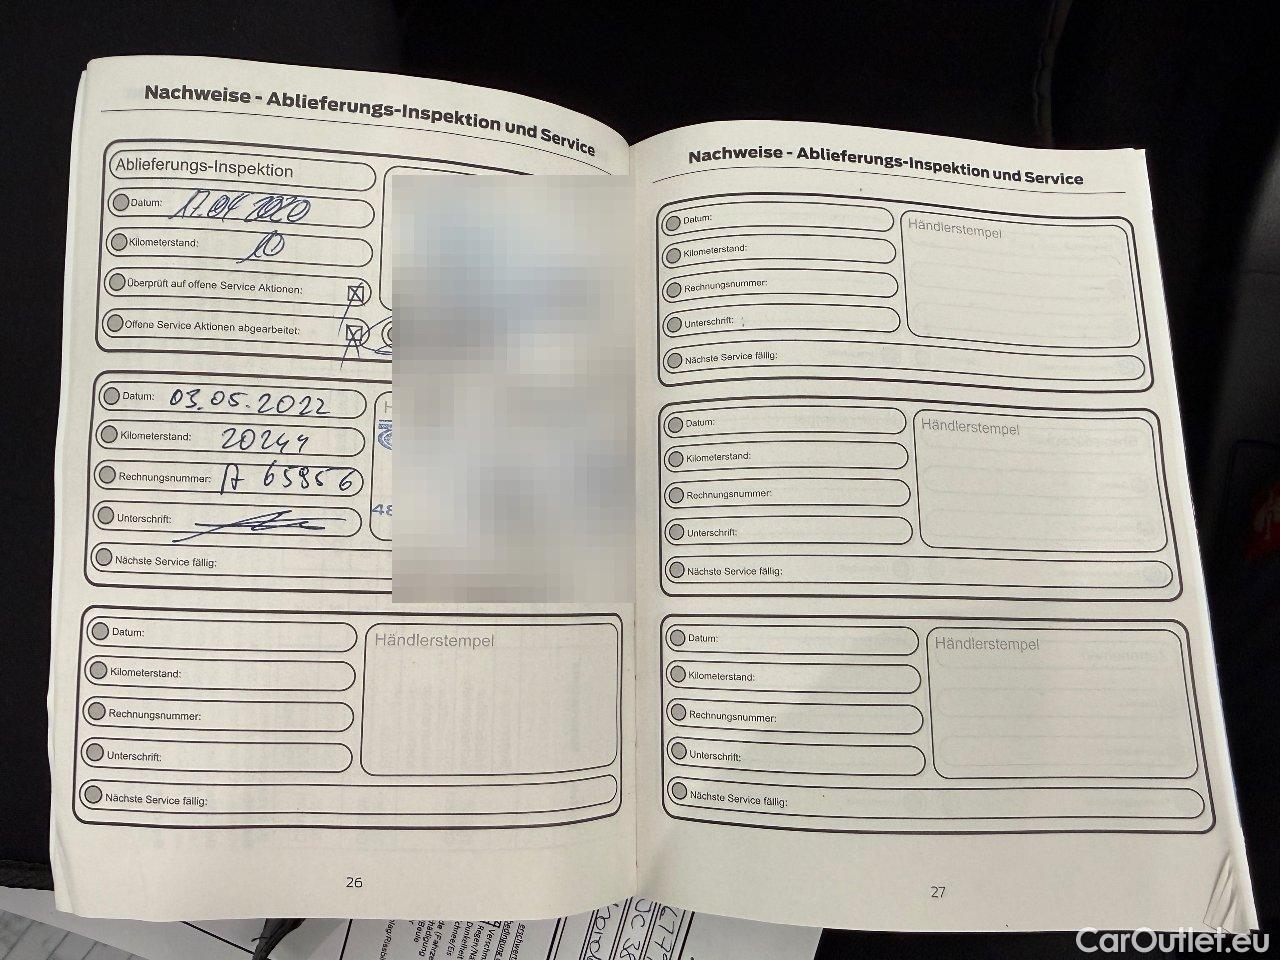 Nachweise - Ablieferungs-Inspektion und Service
Ablieferungs-Inspektion
Datum: 17.04 2020
Kilometerstand: 10
Überprüft auf offene Service Aktionen:
Offene Service Aktionen abgearbeitet:
Datum: 03.05.2022
Kilometerstand: 20244
Rechnungsnummer: A 65956
Unterschrift:
Nächste Service fällig:
48
Datum:
Kilometerstand:
Rechnungsnummer:
Unterschrift:
Nächste Service fällig:
Händlerstempel
26
Nachweise - Ablieferungs-Inspektion und Service
Datum:
Kilometerstand:
Rechnungsnummer:
Unterschrift:
Nächste Service fällig:
Händlerstempel
Datum:
Kilometerstand:
Rechnungsnummer:
Unterschrift:
Nächste Service fällig:
Händlerstempel
Datum:
Kilometerstand:
Rechnungsnummer:
Unterschrift:
Nächste Service fällig:
Händlerstempel
27
CarOutlet.eu